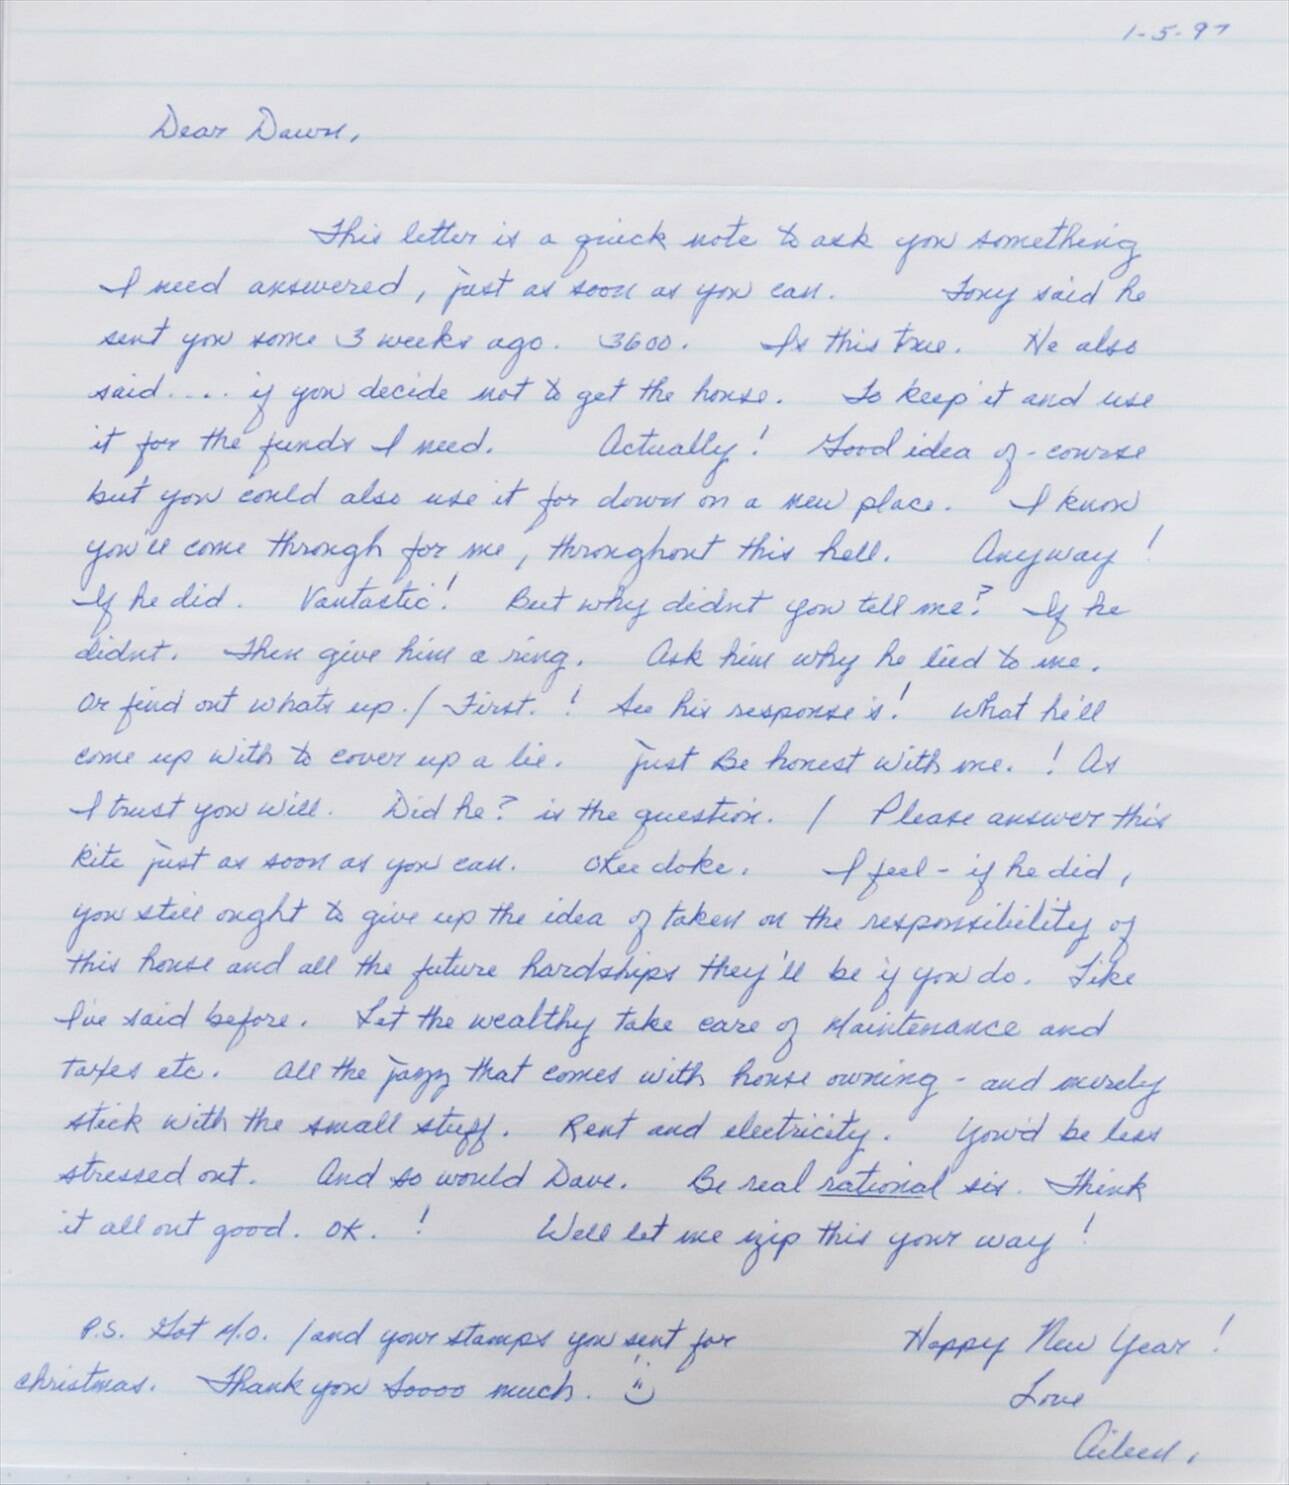 1-5-97
Dear Dawn,
This letter is a quick note to ask you something
I need answered, just as soon as you can. Tony said he
sent you some 3 weeks ago. 3600. Is this true. He also
said.... if you decide not to get the house. To keep it and use
it for the funds I need. Actually! Good idea of-course
but you could also use it for down on a new place. I know
you'll come through for me, throughout this hell. Anyway!
If he did. Vantastic! But why didnt you tell me? If he
didnt. Then give him a ring. Ask him why he lied to me.
Or find out whats up./ First.! See his response's! What he'll
come up with to cover up a lie. just Be honest with me.! As
I trust you will. Did he? is the question. / Please answer this
Kite just as soon as you can. Okee doke. I feel - if he did,
you still ought to give up the idea of taken on the responsibility of
this house and all the future hardships they'll be if you do. Like
I've said before. Let the wealthy take care of Maintenance and
taxes etc. All the jazz that comes with house owning - and merely
stick with the small stuff. Rent and electricity. You'd be less
stressed out. And so would Dave. Be real rational sis. Think
it all out good. OK.! Well let me zip this your way!
P.S. Got M.O. /and your stamps you sent for
christmas. Thank you Soooo much.
Happy New Year!
Love
Aileen,